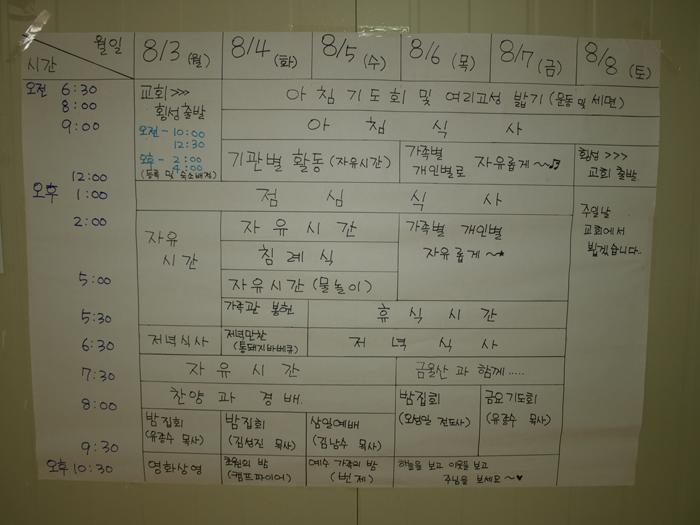 월일
시간
8/3 (월)
8/4 (화)
8/5 (수)
8/6 (목)
8/7 (금)
8/8 (토)
오전 6:30
8:00
9:00
12:00
오후 1:00
2:00
5:00
5:30
6:30
7:30
8:00
9:30
오후 10:30
교회 >>>
횡성출발
오전 - 10:00
12:30
오후 - 2:00
4:00
(등록 및 숙소배정)
아침기도회 및 여리고성 밟기 (운동 및 세면)
아 침 식 사
기관별 활동 (자유시간)
가족별
개인별로 자유롭게~♬
횡성 >>>
교회 출발
점 심 식 사
자유
시간
자 유 시 간
침 례 식
자유시간 (물놀이)
가족별 개인별
자유롭게~
주일날
교회에서
뵙겠습니다..
가족관 봉헌
휴 식 시 간
저녁식사
저녁만찬
(통돼지바베큐)
저 녁 식 사
자 유 시 간
금울산 과 함께 .....
찬양 과 경배.
밤집회
(유종수 목사)
밤집회
(김성진 목사)
삼일예배
(김남수 목사)
밤집회
(오성일 전도사)
금요기도회
(유종수 목사)
영화상영
의 밤
(캠프파이어)
예수 가족의 밤
(번제)
하늘을 보고 이웃을 보고
주님을 보세요~♥